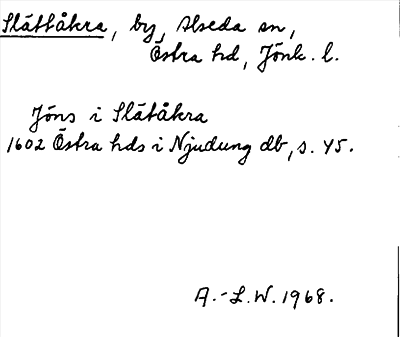 Slättåkra, by, Alseda sn,
Östra hd, Jönk. l.
Jöns i Slätåkra
1602 Östra hds i Njudung db, s. 45.
A.-L.W. 1968.